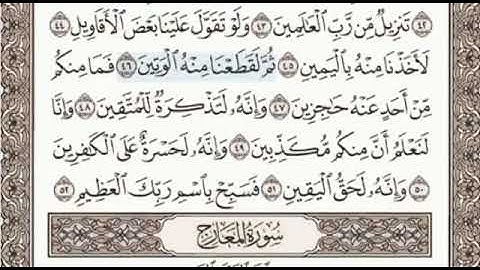 ٤٢ تَنزِيلٌ مِّن رَّبِّ الْعَالَمِينَ ٤٣ وَلَوْ تَقَوَّلَ عَلَيْنَا بَعْضَ الْأَقَاوِيلِ ٤٤
لَأَخَذْنَا مِنْهُ بِالْيَمِينِ ٤٥ ثُمَّ لَقَطَعْنَا مِنْهُ الْوَتِينَ ٤٦ فَمَا مِنكُم
مِّنْ أَحَدٍ عَنْهُ حَاجِزِينَ ٤٧ وَإِنَّهُ لَتَذْكِرَةٌ لِّلْمُتَّقِينَ ٤٨ وَإِنَّا
لَنَعْلَمُ أَنَّ مِنكُم مُّكَذِّبِينَ ٤٩ وَإِنَّهُ لَحَسْرَةٌ عَلَى الْكَافِرِينَ
٥٠ وَإِنَّهُ لَحَقُّ الْيَقِينِ ٥١ فَسَبِّحْ بِاسْمِ رَبِّكَ الْعَظِيمِ ٥٢
سُورَةُ الْمَعَارِجِ